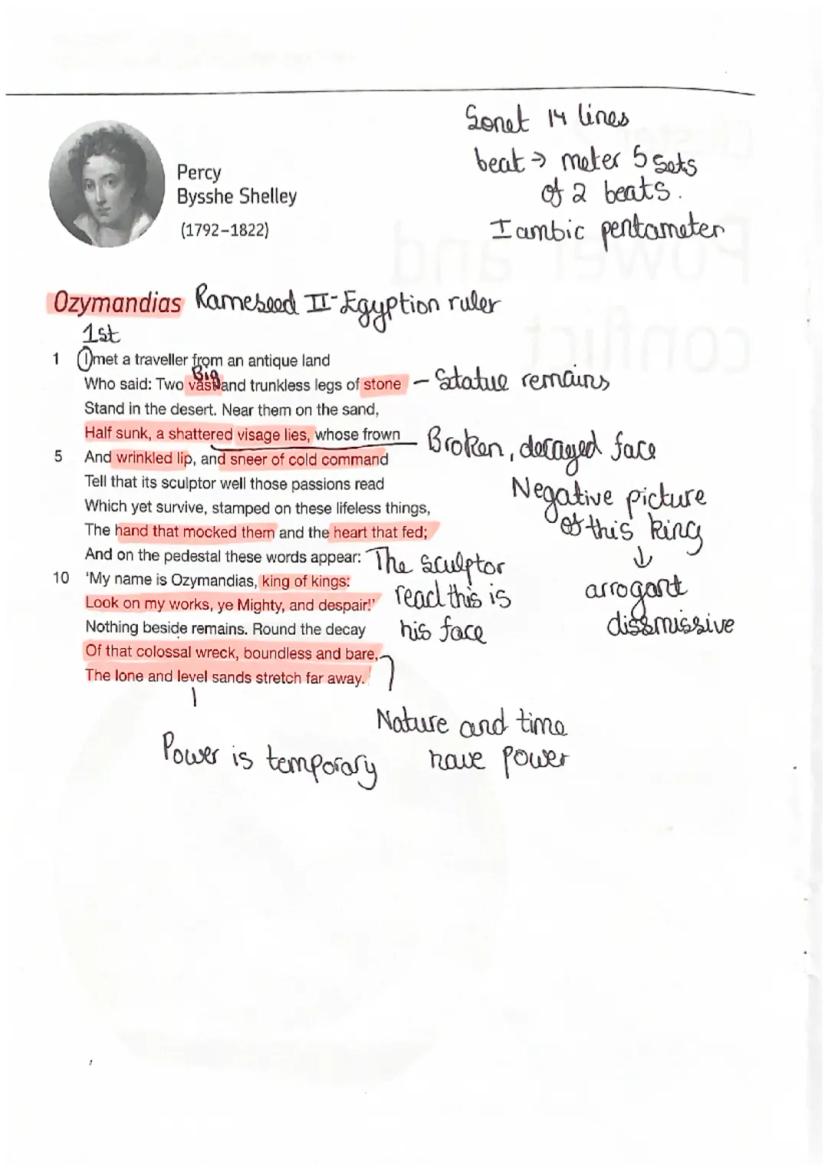 Sonet 14 lines
beat → meter 5 sets
of 2 beats.
Iambic pentameter
Percy
Bysshe Shelley
(1792–1822)
Ozymandias Rameseed II - Egyption ruler
1st
1 I met a traveller from an antique land
Big
Who said: Two vast and trunkless legs of stone – Statue remains
Stand in the desert. Near them on the sand,
Half sunk, a shattered visage lies, whose frown Broken, decayed face
5 And wrinkled lip, and sneer of cold command
Tell that its sculptor well those passions read
Which yet survive, stamped on these lifeless things,
The hand that mocked them and the heart that fed;
And on the pedestal these words appear:
10 'My name is Ozymandias, king of kings:
Look on my works, ye Mighty, and despair!'
Nothing beside remains. Round the decay
Of that colossal wreck, boundless and bare,
The lone and level sands stretch far away.'
Negative picture
of this king
↓
arrogant
dissmissive
The sculptor
read this is
his face
Nature and time
have power
Power is temporary
Power and
conflict